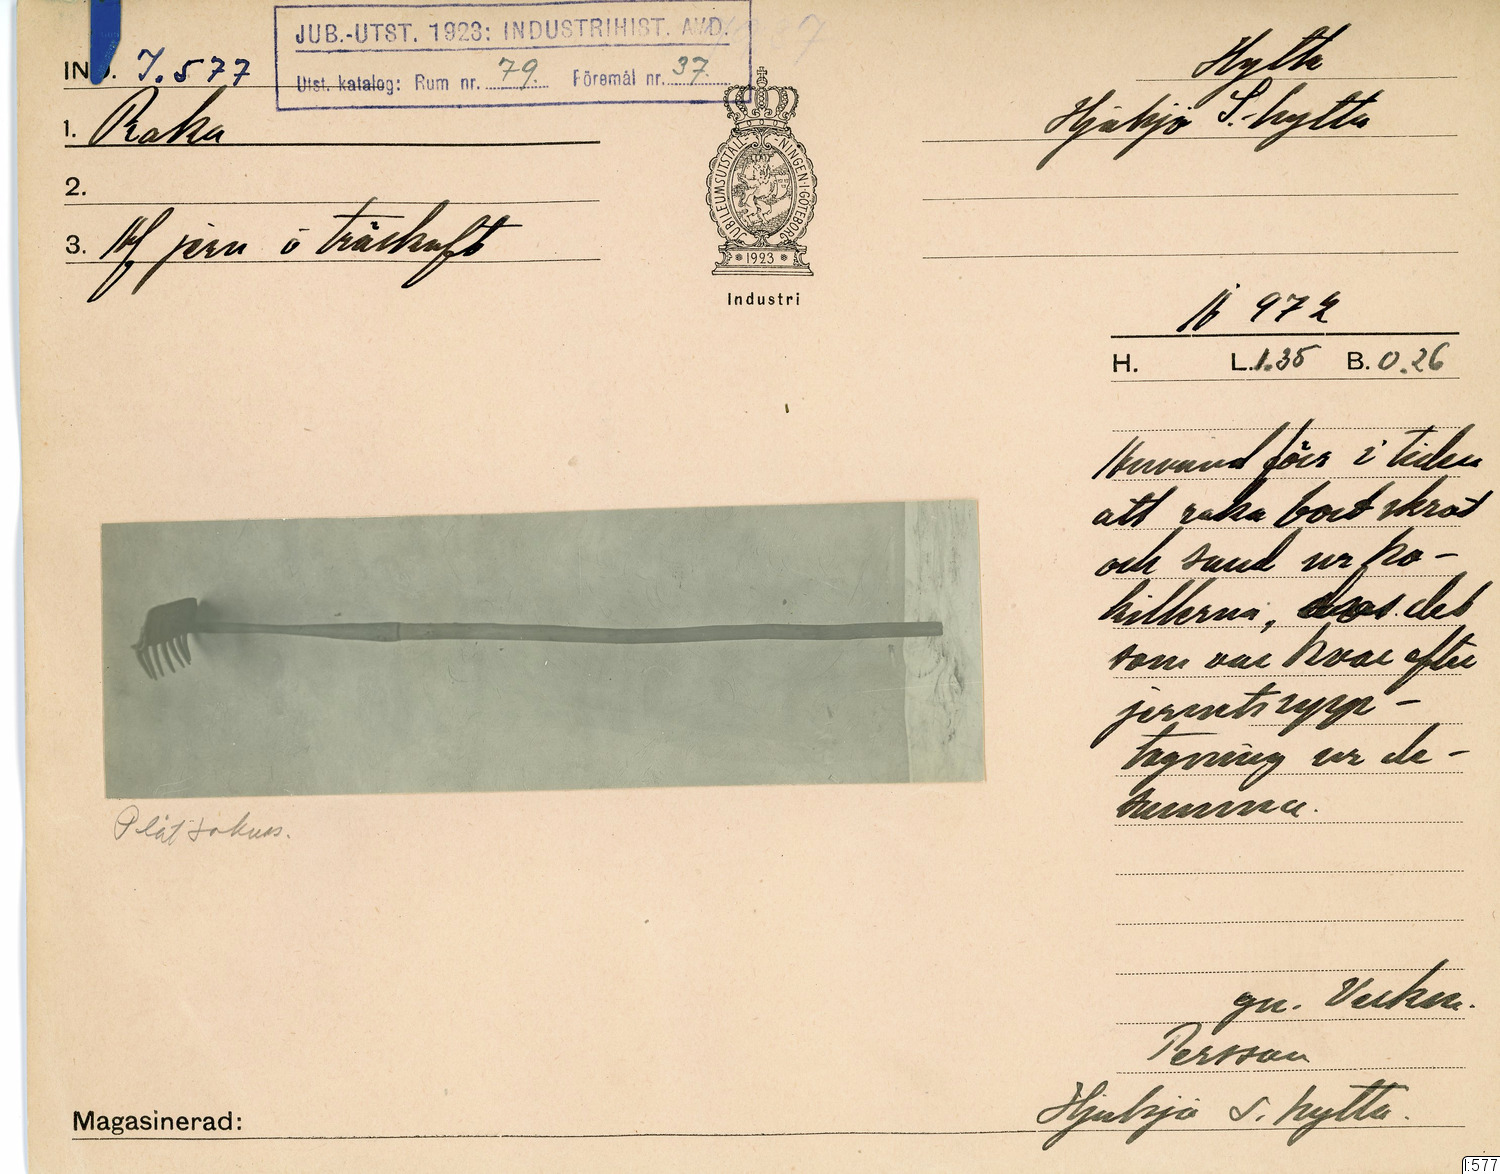 JUB.-UTST. 1923: INDUSTRIHIST. AVD.
Utst. katalog: Rum nr. 79. Föremål nr. 37.
IND. I. 577
1. Raka
2.
3. Af jern o träskaft
JUBILEUMSUTSTÄLLNINGEN·I·GÖTEBORG
1923
Industri
Hytta
S.-hytta
A 972
H. L. 1.35 B. 0.26
Användt förr i tiden
att raka bort skrot
och sand ur ko-
killerna, det
som var kvar efter
jernets upp-
tagning ur de-
samma.
Plåt
gn. Verkm.
Persson
S. hytta.
Magasinerad:
I:577